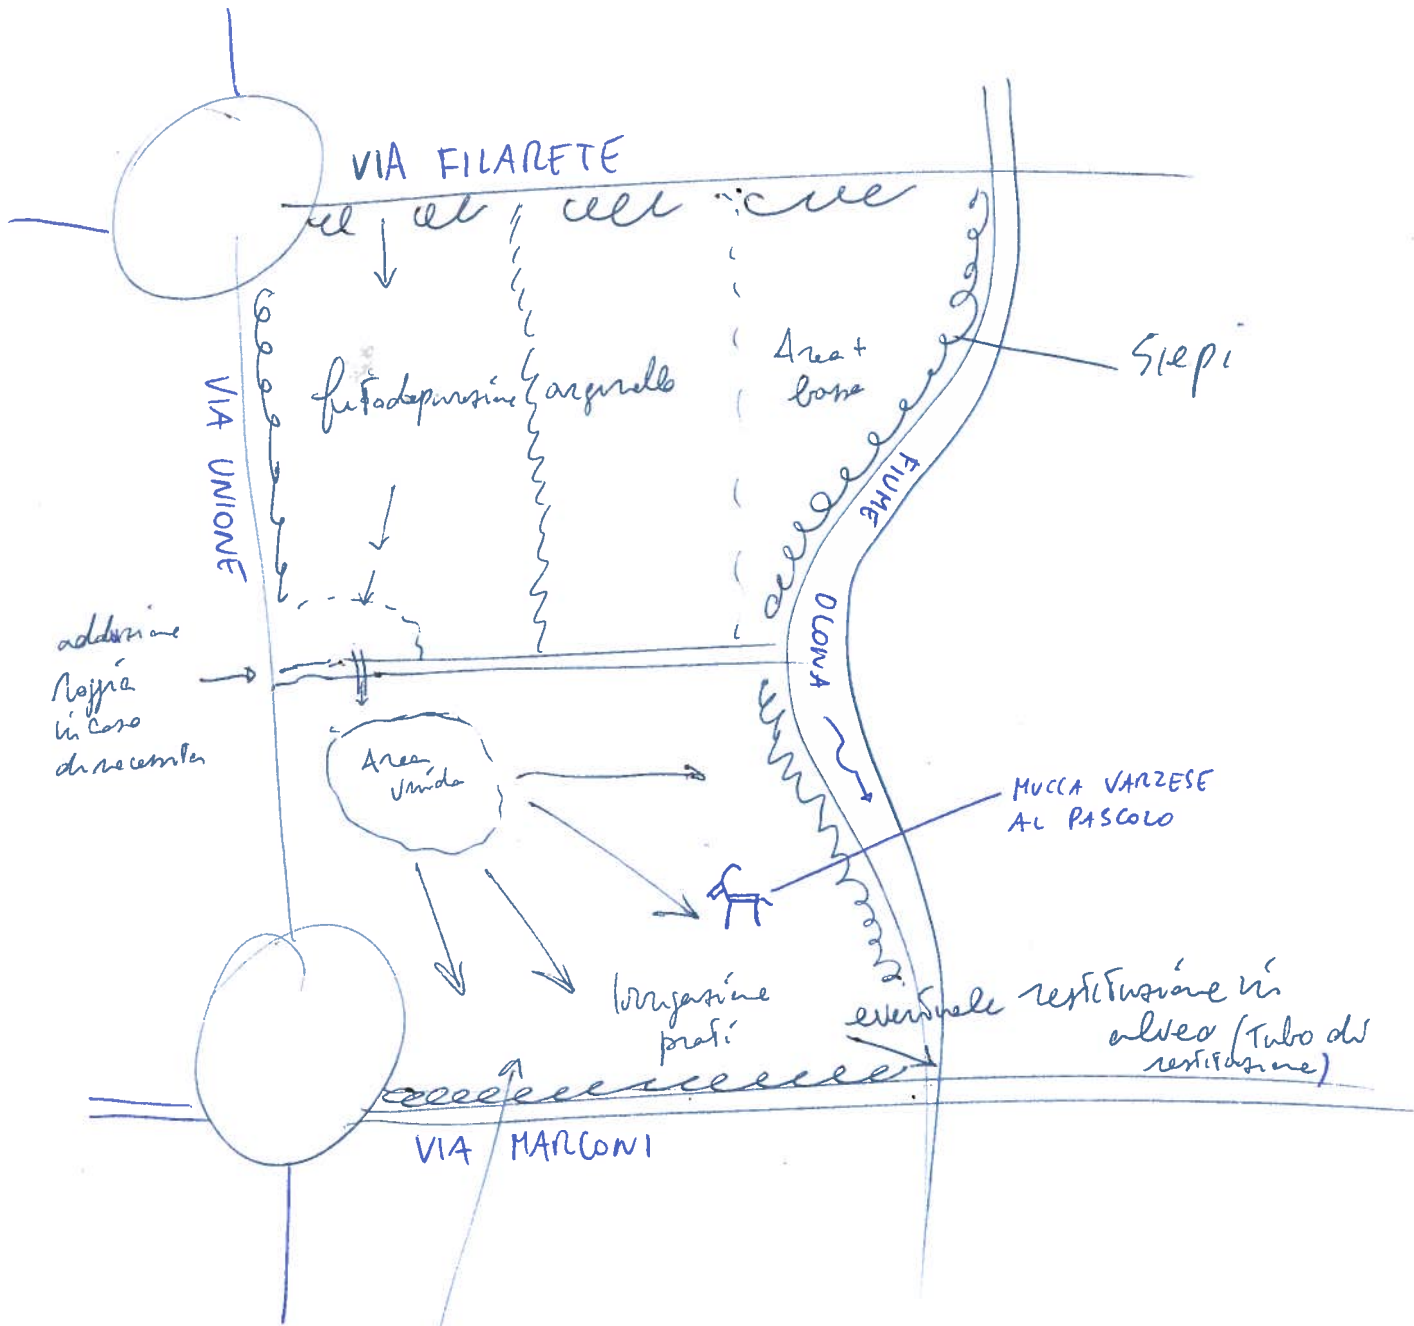 VIA FILARETE
Siepi
Area +
bassa
fitodepurazione
arginello
VIA UNIONE
FIUME
OLONA
adduzione
Roggia
in caso
di necessità
Area
umida
MUCCA VARZESE
AL PASCOLO
Irrigazione
prati
eventuale restituzione in
alveo (Tubo di
restituzione)
VIA MARCONI